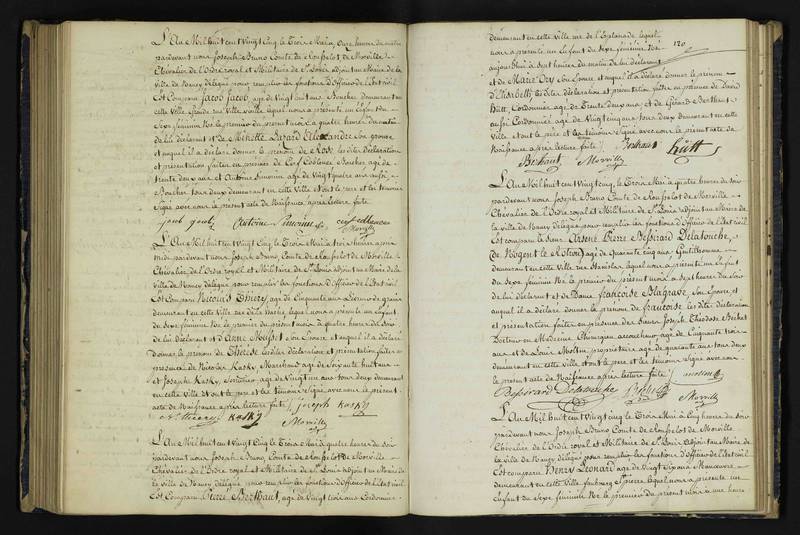 L'An Mil huit cent Vingt Cinq le Trois Mai à Onze heures du matin
pardevant nous Joseph Bruno Comte de Rousselot de Morville
Chevalier de l'Ordre royal et Militaire de St. Louis adjoint au Maire de la
ville de Nancy délégué pour remplir les fonctions d'Officier de l'Etat civil
Est Comparu Jacob Jacob, agé de Vingt huit ans Boucher demeurant en
cette Ville Grande rue ville vieille lequel nous a présenté un Enfant du
Sexe féminin Né le premier du présent mois à quatre heures du matin
de lui déclarant et de Minette Lazard Ellexandre Son épouse
et auquel il a déclaré donner le prénom de Rose les dites déclaration
et présentation faites en présence de Cerf Boucher agé de
trente deux ans et Antoine Simonin agé de Vingt quatre ans aussi
Boucher tous deux demeurant en cette Ville et ont le père et les témoins
Signé avec nous le présent acte de Naissance, après lecture faite
Antoine Simonin
Morville
L'An Mil huit cent Vingt Cinq le Trois Mai à trois heures après
midi pardevant nous Joseph Bruno Comte de Rousselot de Morville
Chevalier de l'Ordre royal et Militaire de St. Louis adjoint au Maire de la
Ville de Nancy délégué pour remplir les fonctions d'Officier de l'Etat civil
Est Comparu Nicolas Thiery agé de Cinquante ans
demeurant en cette Ville rue de la hache lequel nous a présenté un enfant
du Sexe féminin Né le premier du présent mois à quatre heures du soir
de lui déclarant et d'Anne Mussot Son Epouse et auquel il a déclaré
donner le prénom de Thérèse les dites déclaration et présentation faites en
présence de Nicolas Kasky, Marchand agé de Soixante huit ans
et Joseph Kasky, agé de Vingt un ans tous deux demeurant
en cette Ville et ont le père et les témoins Signé avec nous le présent
acte de Naissance après lecture faite Joseph Kasky
Kasky
Morville
L'An Mil huit cent Vingt Cinq le Trois Mai à quatre heures du soir
pardevant nous Joseph Bruno Comte de Rousselot de Morville
Chevalier de l'Ordre royal et Militaire de St. Louis adjoint au Maire de
la ville de Nancy délégué pour remplir les fonctions d'Officier de l'Etat civil
Est Comparu Pierre Berthaut, agé de Vingt trois ans Cordonnier
120
demeurant en cette Ville rue de l'Esplanade lequel
nous a présenté un Enfant du Sexe féminin Né
aujourd'hui à Sept heures du matin de lui déclarant
et de Marie Dry Son Epouse et auquel il a déclaré donner le prénom
d'Elisabeth les dites déclaration et présentation faites en présence de David
Hütt, Cordonnier agé de Trente deux ans et de Gérard Berthaut
aussi Cordonnier agé de Vingt cinq ans tous deux demeurant en cette
Ville et ont le père et les témoins Signé avec nous le présent acte de
Naissance après lecture faite Berthaut Hütt
Berthaut Morville
L'An Mil huit cent Vingt Cinq le Trois Mai à quatre heures du soir
pardevant nous Joseph Bruno Comte de Rousselot de Morville
Chevalier de l'Ordre royal et Militaire de St. Louis adjoint au Maire de
la ville de Nancy délégué pour remplir les fonctions d'Officier de l'Etat civil
Est comparu le Sieur Arsène Pierre Bessirard Delatouche,
de Nogent le Rotrou agé de Quarante cinq ans Gentilhomme
demeurant en cette Ville rue Stanislas lequel nous a présenté un Enfant
du Sexe féminin Né le premier du présent mois à Sept heures du Soir
de lui déclarant et de Dame Françoise Blagrave, Son Epouse et
auquel il a déclaré donner le prénom de Françoise les dites déclaration
et présentation faites en présence des Sieurs Joseph Théodose Béchet
Docteur en Médecine Chirurgien accoucheur agé de Cinquante trois
ans et de Louis Mottin propriétaire agé de quarante ans tous deux
demeurant en cette Ville et ont le père et les témoins Signé avec nous
le présent acte de Naissance après lecture faite
Bessirard Delatouche
Morville
L'An Mil huit cent Vingt cinq le Trois Mai à Cinq heures du soir
pardevant nous Joseph Bruno Comte de Rousselot de Morville
Chevalier de l'Ordre royal et Militaire de St. Louis adjoint au Maire de
la ville de Nancy délégué pour remplir les fonctions d'Officier de l'Etat civil
Est comparu Henry Leonard agé de Vingt Six ans Manœuvre
demeurant en cette Ville faubourg St. Pierre lequel nous a présenté un
Enfant du Sexe féminin Né le premier du présent mois à une heure